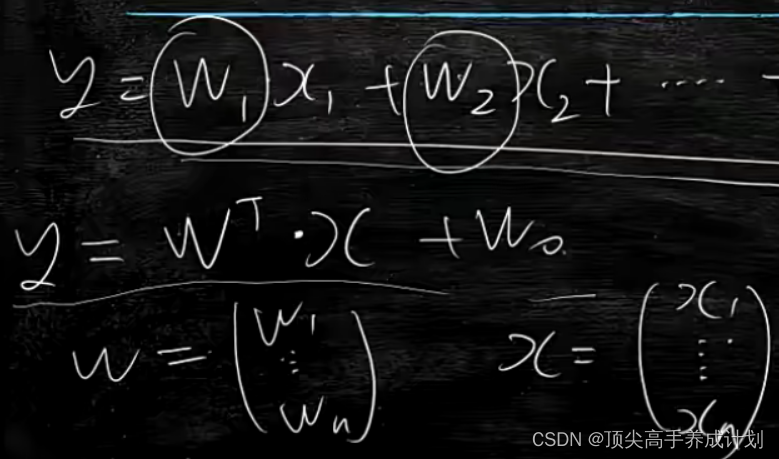 y = W₁x₁ + W₂x₂ + ....
y = Wᵀ·x + W₀
w = (W₁ ⋮ Wₙ) x = (x₁ ⋮ xₙ)
CSDN @顶尖高手养成计划